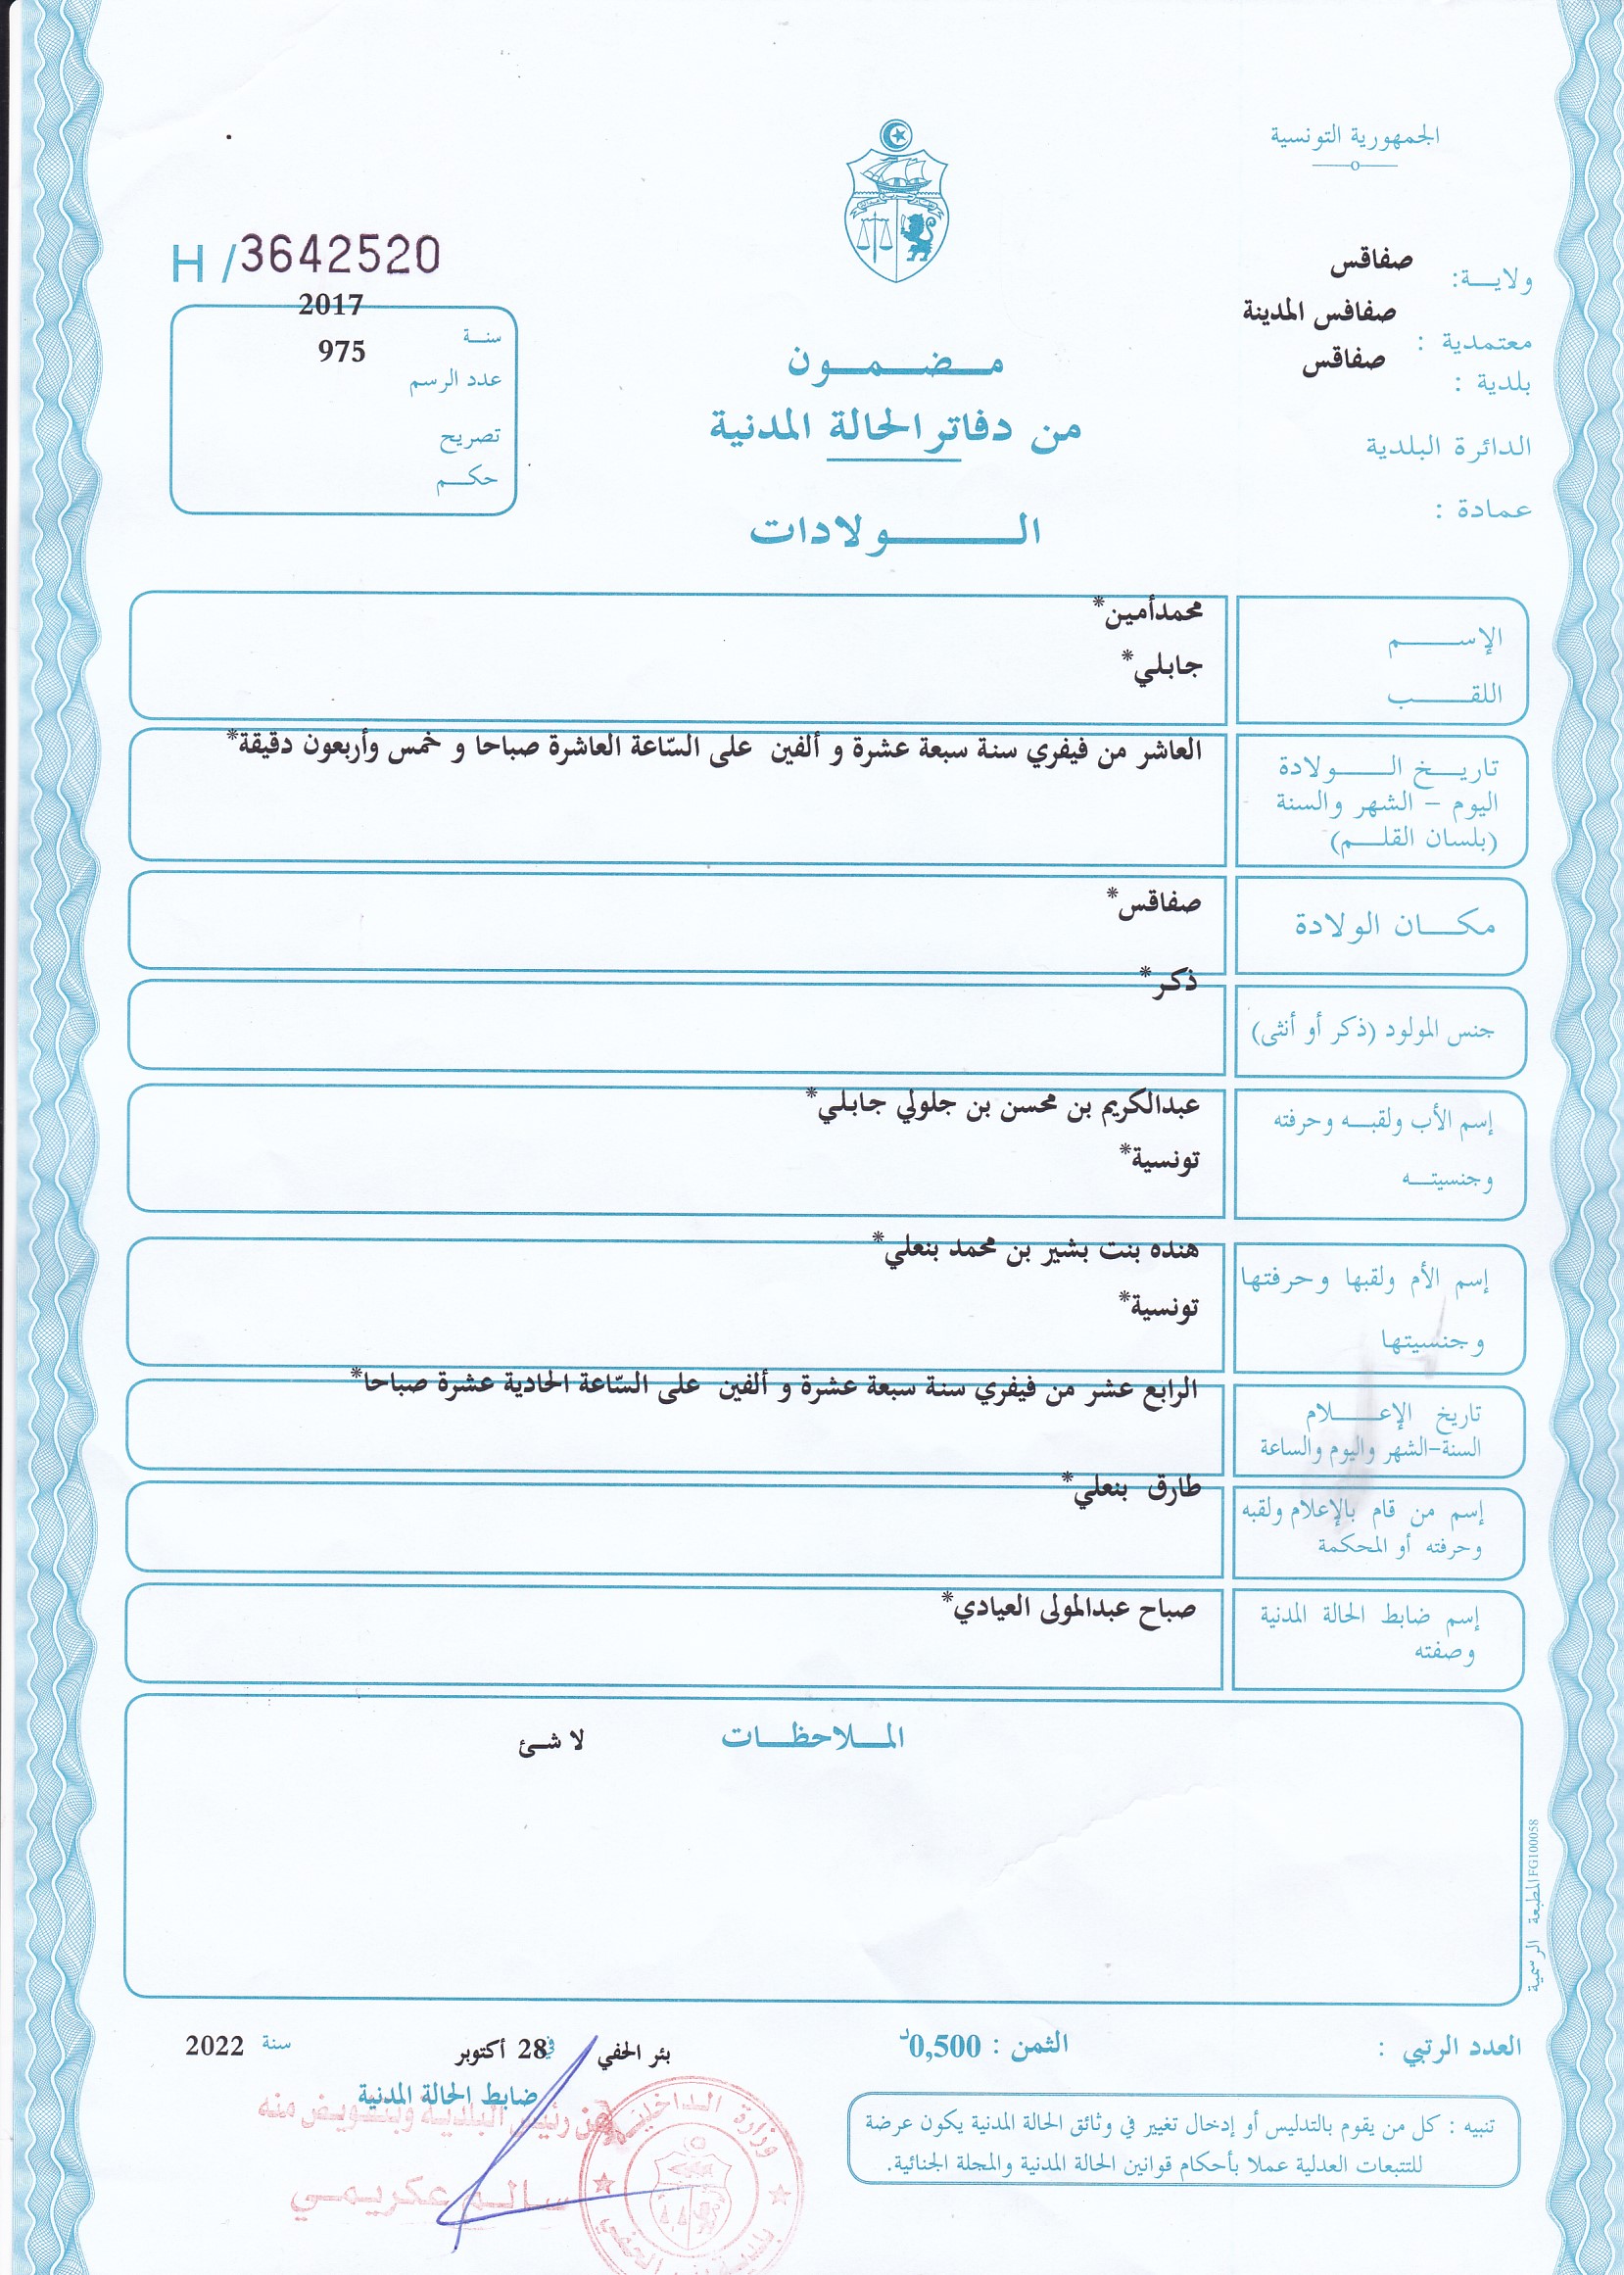 الجمهورية التونسية
H /3642520
ولاية: صفاقس
معتمدية : صفاقس المدينة
بلدية : صفاقس
الدائرة البلدية
عمادة :
سنة 2017
عدد الرسم 975
تصريح
حكم
مضمون
من دفاتر الحالة المدنية
الولادات
الإسم محمدأمين*
اللقب جابلي*
العاشر من فيفري سنة سبعة عشرة و ألفين على السّاعة العاشرة صباحا و خمس وأربعون دقيقة*
تاريخ الولادة
اليوم – الشهر والسنة
(بلسان القلم)
مكان الولادة صفاقس*
جنس المولود (ذكر أو أنثى) ذكر*
إسم الأب ولقبه وحرفته عبدالكريم بن محسن بن جلولي جابلي*
وجنسيته تونسية*
إسم الأم ولقبها وحرفتها هنده بنت بشير بن محمد بنعلي*
وجنسيتها تونسية*
الرابع عشر من فيفري سنة سبعة عشرة و ألفين على السّاعة الحادية عشرة صباحا*
تاريخ الإعلام
السنة-الشهر واليوم والساعة
طارق بنعلي*
إسم من قام بالإعلام ولقبه
وحرفته أو المحكمة
إسم ضابط الحالة المدنية صباح عبدالمولى العيادي*
وصفته
الملاحظات لا شئ
المطبعة الرسمية FG100058
العدد الرتبي :
الثمن : 0,500د
بئر الحفي في 28 أكتوبر سنة 2022
ضابط الحالة المدنية
عن رئيس البلدية وبتفويض منه
سالم عكريمي
وزارة الداخلية
بلدية بئر الحفي
تنبيه : كل من يقوم بالتدليس أو إدخال تغيير في وثائق الحالة المدنية يكون عرضة
للتتبعات العدلية عملا بأحكام قوانين الحالة المدنية والمجلة الجنائية.